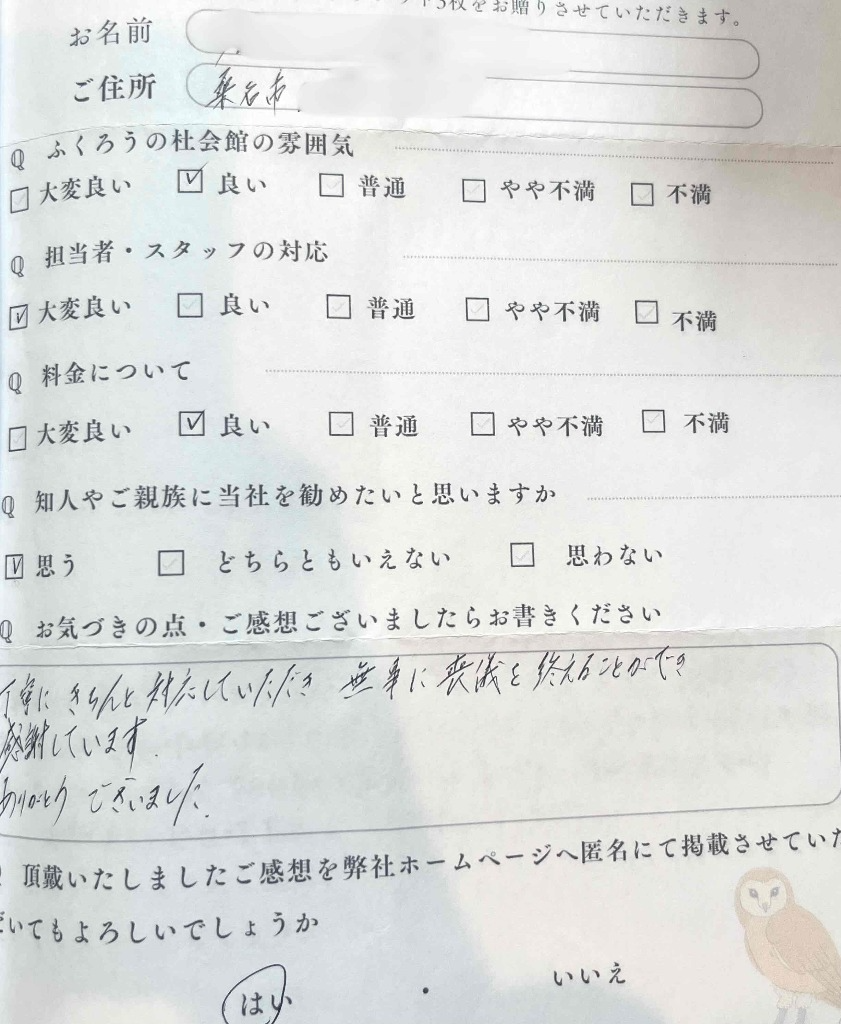 枚をお贈りさせていただきます。
お名前
ご住所 桑名市
Q ふくろうの杜会館の雰囲気
大変良い ☑ 良い 普通 やや不満 不満
Q 担当者・スタッフの対応
☑ 大変良い 良い 普通 やや不満 不満
Q 料金について
大変良い ☑ 良い 普通 やや不満 不満
Q 知人やご親族に当社を勧めたいと思いますか
☑ 思う どちらともいえない 思わない
Q お気づきの点・ご感想ございましたらお書きください
丁寧にきちんと対応していただき 無事に喪儀を終えることができ
感謝しています.
ありがとうございました.
頂戴いたしましたご感想を弊社ホームページへ匿名にて掲載させていた
だいてもよろしいでしょうか
はい ・ いいえ